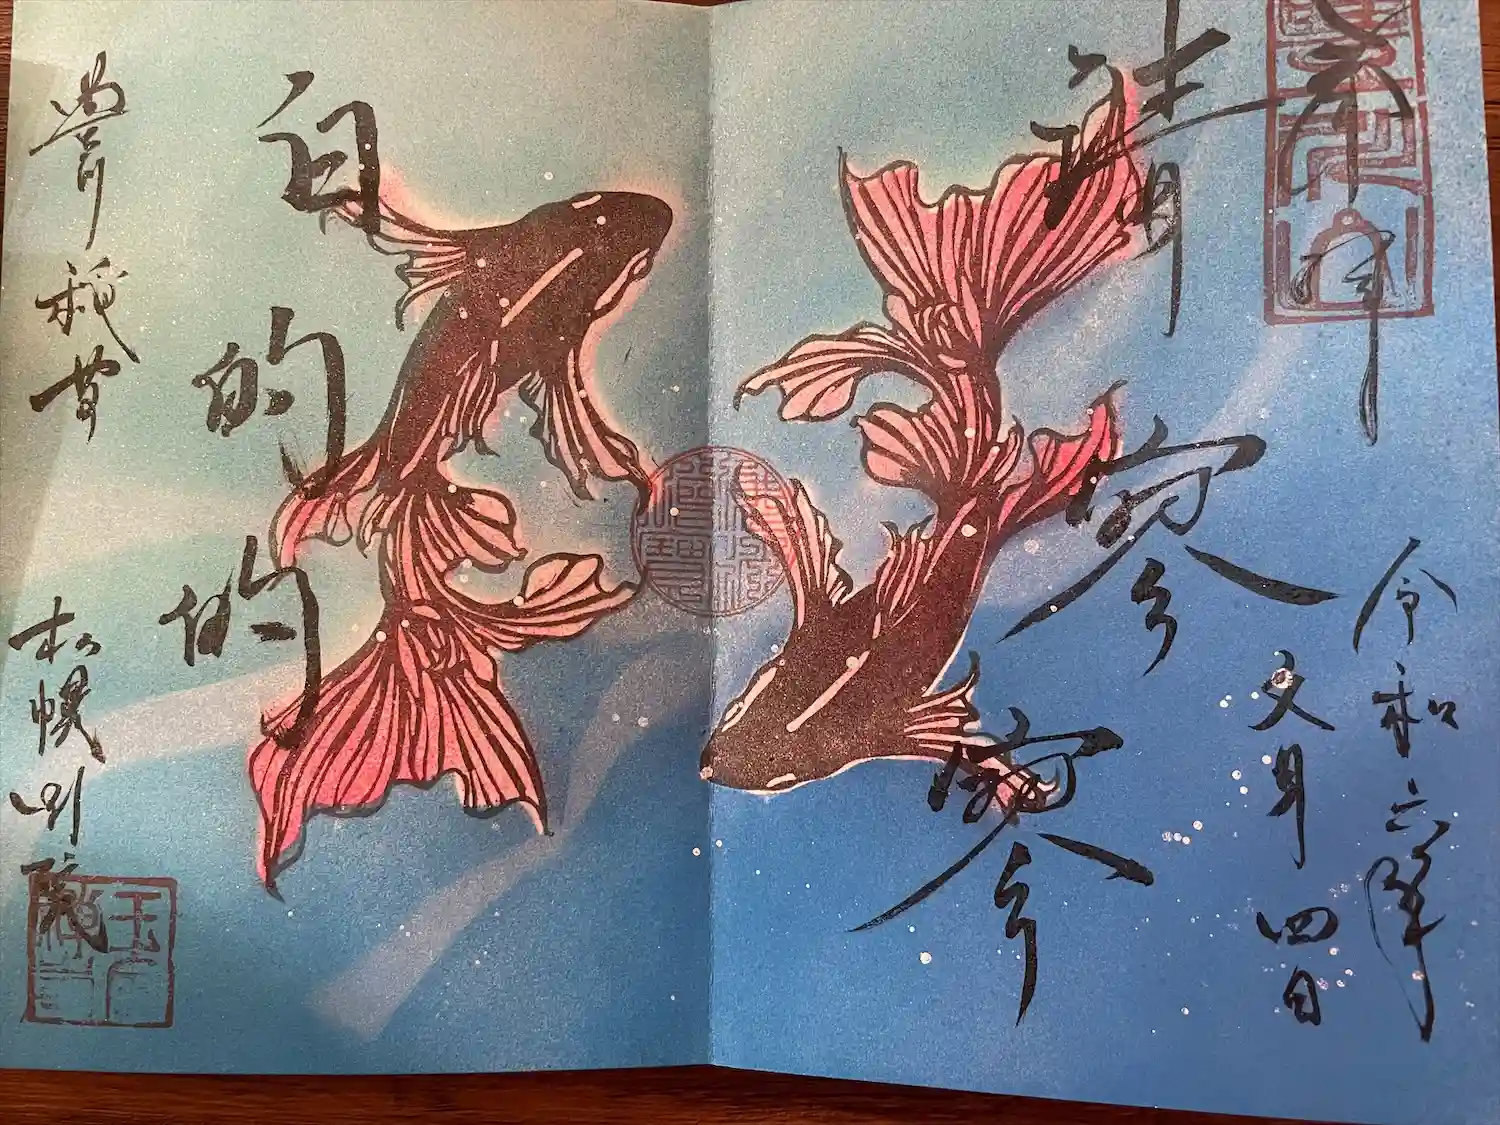 奉拝
令和六年
文月四日
清寥寥
白的的
豊川稲荷
札幌別院